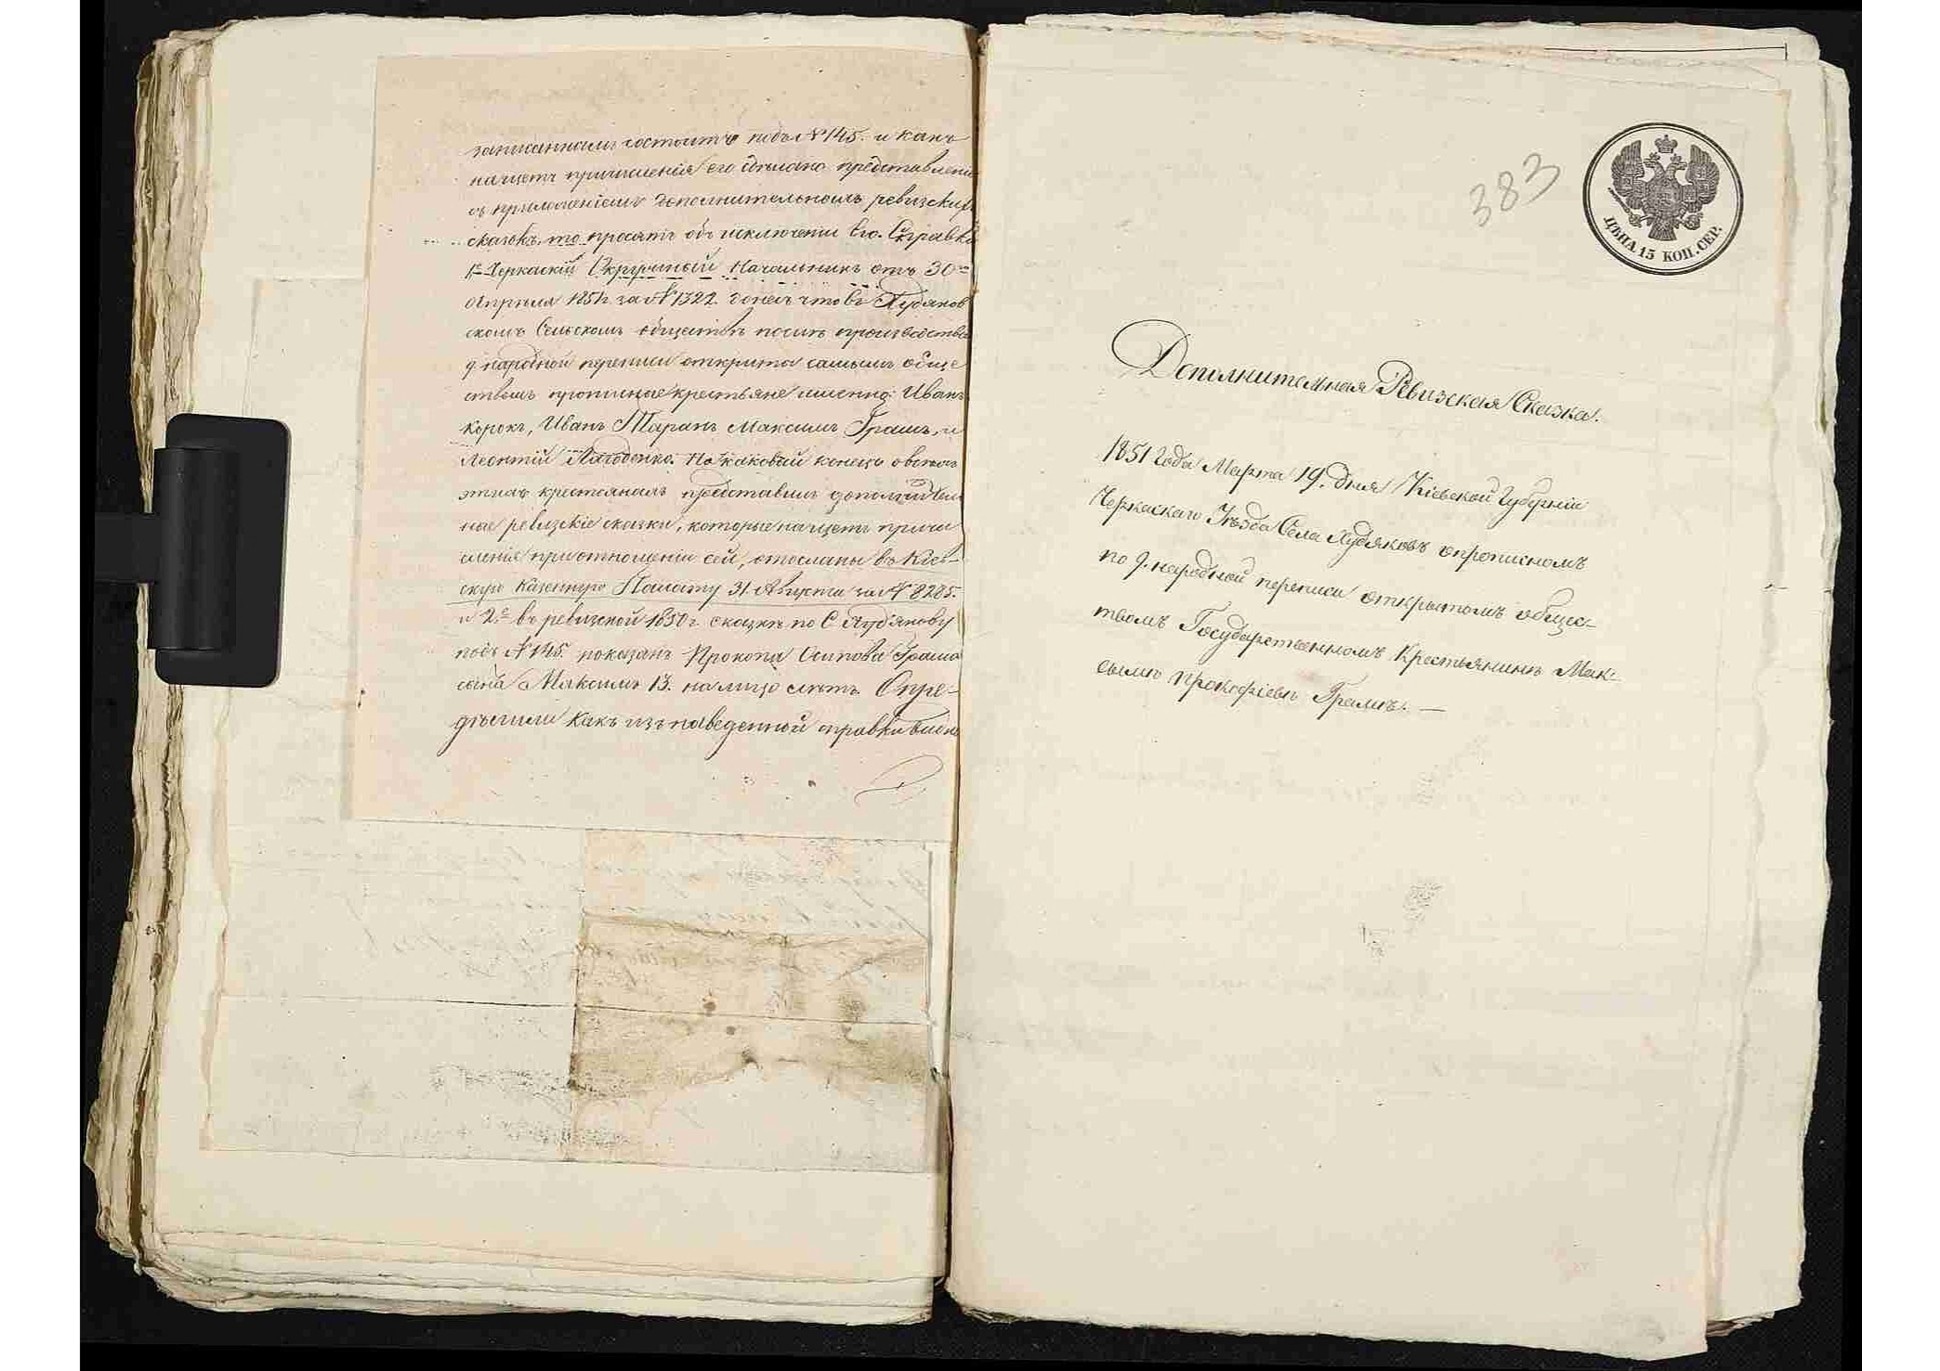 записаннымъ состоитъ подъ №145. и какъ
насчетъ причисленія его сдѣлано представлені
съ приложеніемъ дополнительныхъ ревизских
сказокъ, то просятъ объ исключеніи его. Справка
1е Черкаскій Окружный Начальникъ отъ 30го
Апрѣля 1851г. за №1322. донес что въ Худяков
скомъ Сельскомъ обществѣ послѣ производства
9 народной переписи открыто самымъ обще
ствомъ прописные крестьяне именно: Иванъ
Корокъ, Иванъ Таранъ Максимъ Грамъ, и
Леонтій На каковый конецъ о всѣхъ
этихъ крестьянахъ представилъ дополнител
ныя ревизскіе сказки, которые насчетъ причи
сленія при отношеніи сей, отосланы въ Кіев-
скую Казенную Палату 31. Августа за № 8285.
и 2е въ ревизской 1850г. сказкѣ по С Худякову
подъ №145. показанъ Прокопа Осипова Грама
сынъ Максимъ 13. на лицо лѣтъ. Опре-
дѣлили какъ изъ наведенной справки видно
383
ЦѢНА 15 КОП. СЕР.
Дополнительная Ревизская Сказка.
1851 года Марта 19. дня Кіевской Губерніи
Черкаскаго Уѣзда Села Худяковъ о прописномъ
по 9. народной переписи открытомъ общес-
твомъ Государственномъ Крестьянинѣ Мак-
сымѣ Прокофіевѣ Грамѣ. —